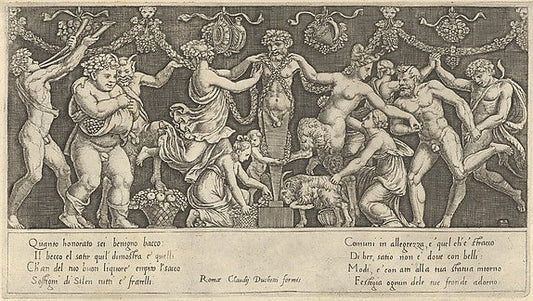 Quanto honorato sei benigno bacco
Il becco el satir quel dimostra e' quelli
Ch'an del tuo buon liquore' empito l'sacco
Di Silen tutti e' fratelli
Romæ Claudij Ducheti formis
Comuni in allegrezza, e' quel ch'e' stracco
Di ber, satio non e' doue con belli
Modi, e' con am alla tua statua intorno
ognun delle tue fronde adorno